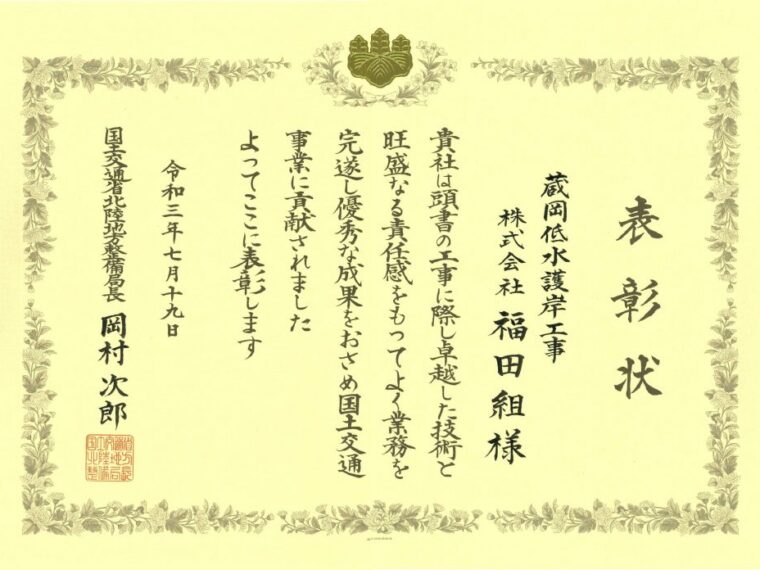 表彰状
蔵岡低水護岸工事
株式会社 福田組様
貴社は頭書の工事に際し卓越した技術と
旺盛なる責任感をもってよく業務を
完遂し優秀な成果をおさめ国土交通
事業に貢献されました
よってここに表彰します
令和三年七月十九日
国土交通省北陸地方整備局長 岡村次郎